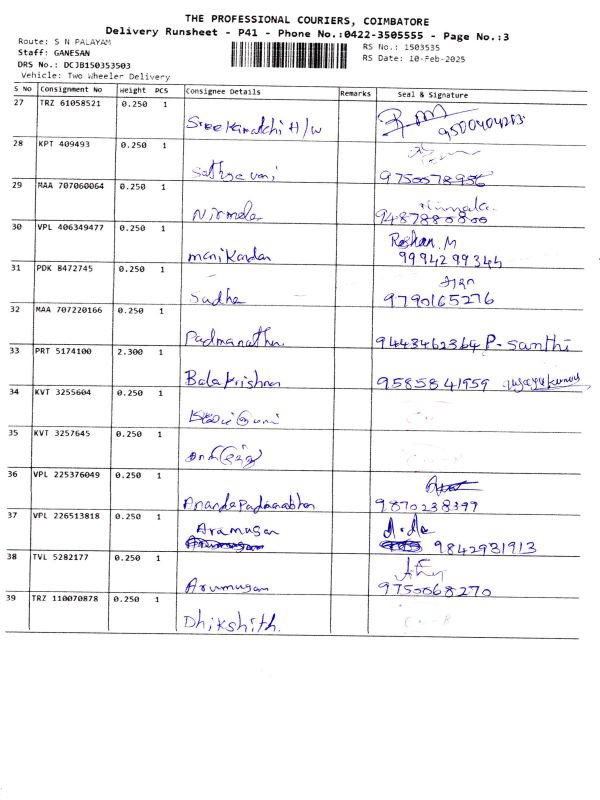 THE PROFESSIONAL COURIERS, COIMBATORE
Delivery Runsheet - P41 - Phone No.:0422-3505555 - Page No.:3
Route: S N PALAYAM
RS No.: 1503535
Staff: GANESAN
RS Date: 10-Feb-2025
DRS No.: DCJB150353503
Vehicle: Two Wheeler Delivery
S No Consignment No Weight PCS Consignee Details Remarks Seal & Signature
27 TRZ 61058521 0.250 1
9500404283
28 KPT 409493 0.250 1
Sathya vani 9750578956
29 MAA 707060064 0.250 1 Nirmala
Nirmala 9487880800
30 VPL 406349477 0.250 1 Roshan.M
manikandan 9994299344
31 PDK 8472745 0.250 1
Sudha 9790165276
32 MAA 707220166 0.250 1
Padmanathan 9443462364 P. Santhi
33 PRT 5174100 2.300 1
Balakrishnan 9585841959
34 KVT 3255604 0.250 1
35 KVT 3257645 0.250 1
36 VPL 225376049 0.250 1
AnandaPadmanabhan 9870238399
37 VPL 226513818 0.250 1 Arumugan
9842931913
38 TVL 5282177 0.250 1
Arumugam 9750068270
39 TRZ 110070878 0.250 1
Dhikshith.